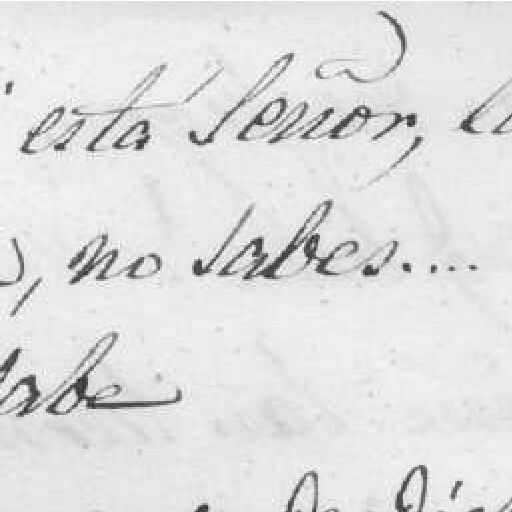 está Señor,
, no sabes....
sabe